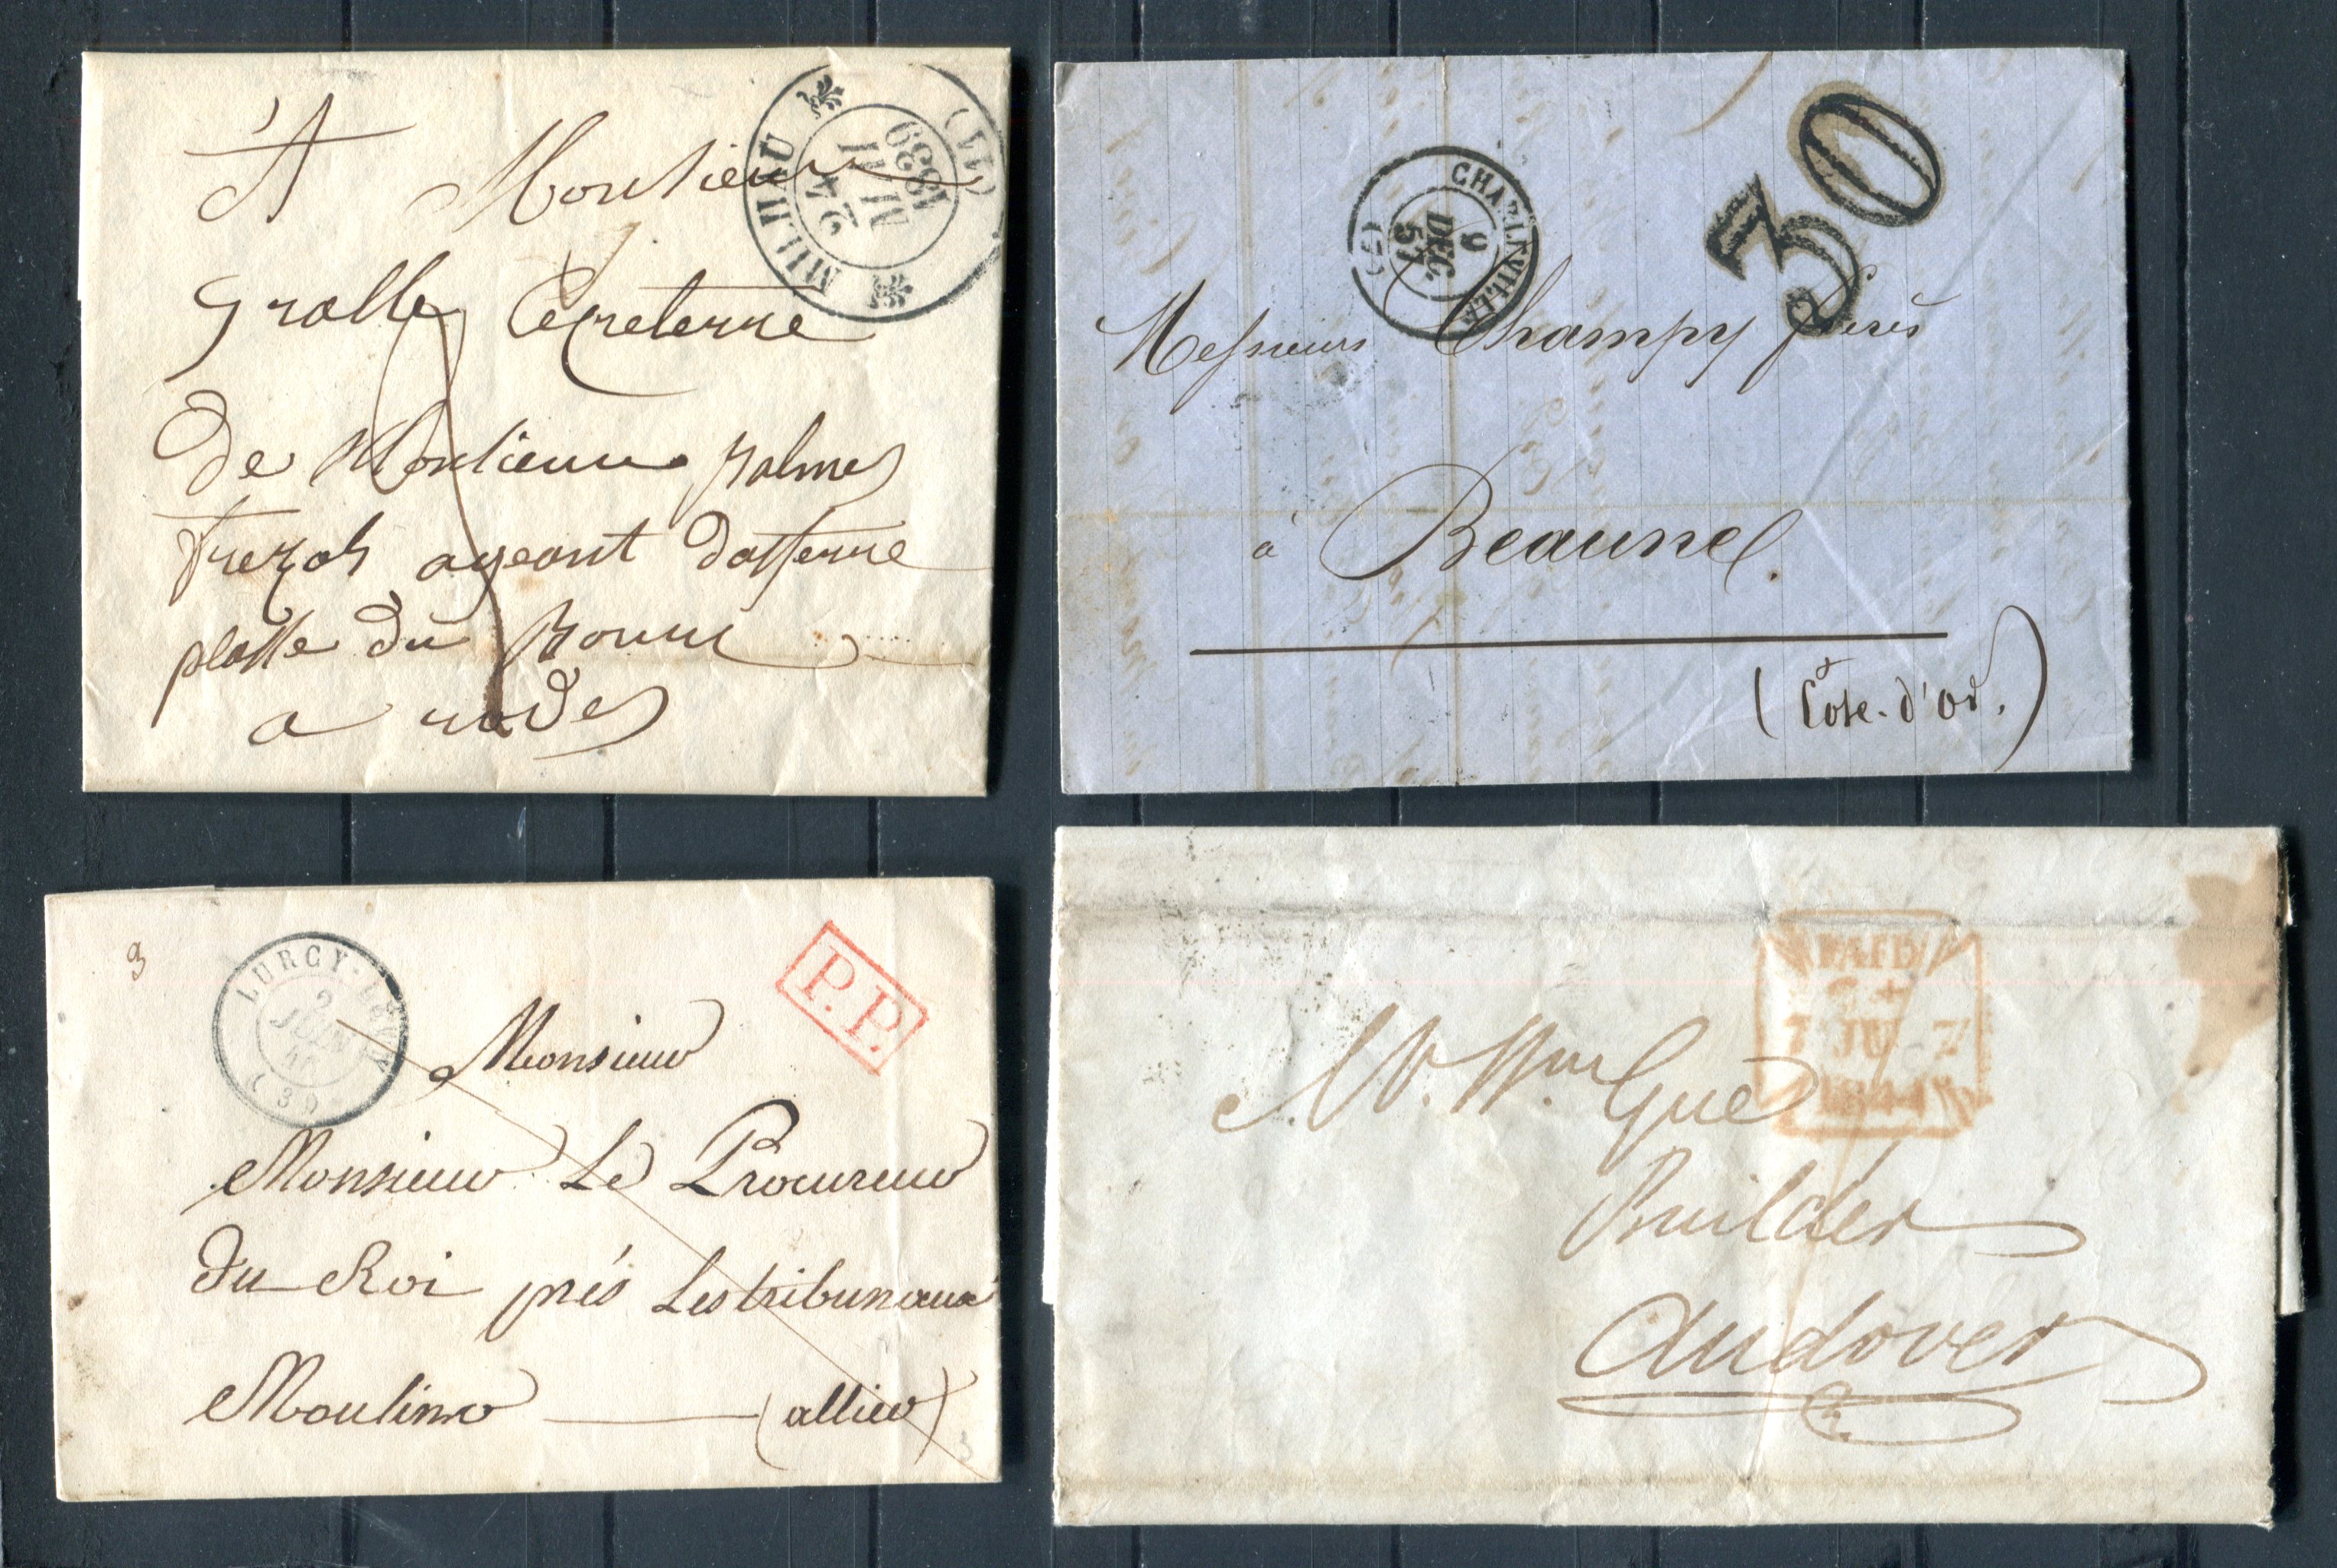 MILHAU
24
1839
(11)
A Monsieur
gralle
de Monsieur palmes
place du Bourc
a rodes
CHARLEVILLE
9
DEC.
57
(7)
30
Messieurs Champy frères
à Beaune.
(Côte-d'Or.)
3
LURCY-LEVY
2
JUIN
46
(3)
P.P.
Monsieur
Monsieur Le Procureur
du Roi près Les tribunaux
Moulins (allier)
3
PAID
7 JU 7
1844
Mr. Wm Gue
Builder
Andover